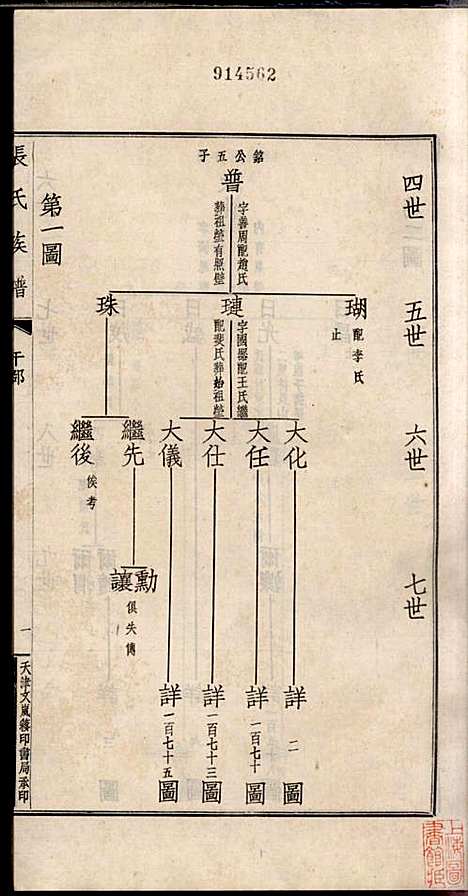 914562
四世
五世
六世
七世
銘公五子
普
字善周配趙氏
葬祖塋有照壁
瑚
配李氏
止
璉
字國器配王氏繼
配裴氏葬始祖塋
珠
大化
大任
大仕
大儀
繼先
繼後
俟考
勳
讓
俱失傳
詳二圖
詳一百七十圖
詳一百七十三圖
詳一百七十五圖
第一圖
張氏族譜
午部
一
天津文嵐簃印書局承印
上海圖
書館藏